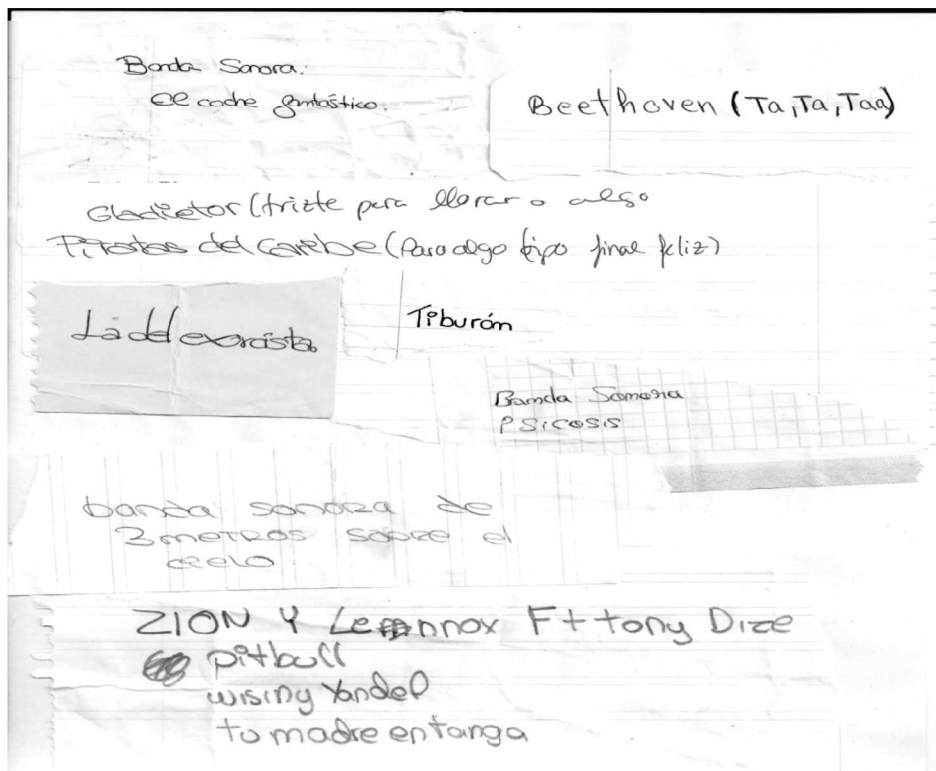 Banda Sonora:
El coche fantástico.
Beethoven (Ta, Ta, Taa)
Gladietor (trizte para llorar o algo
Piratas del caribe (Para algo tipo final feliz)
La del exorcista
Tiburón
Banda Sonora
PSICOSIS
banda sonora de
3 metros sobre el
cielo
ZION Y Lennox Ft tony Dize
pitbull
wisiny Yandel
tu madre en tanga